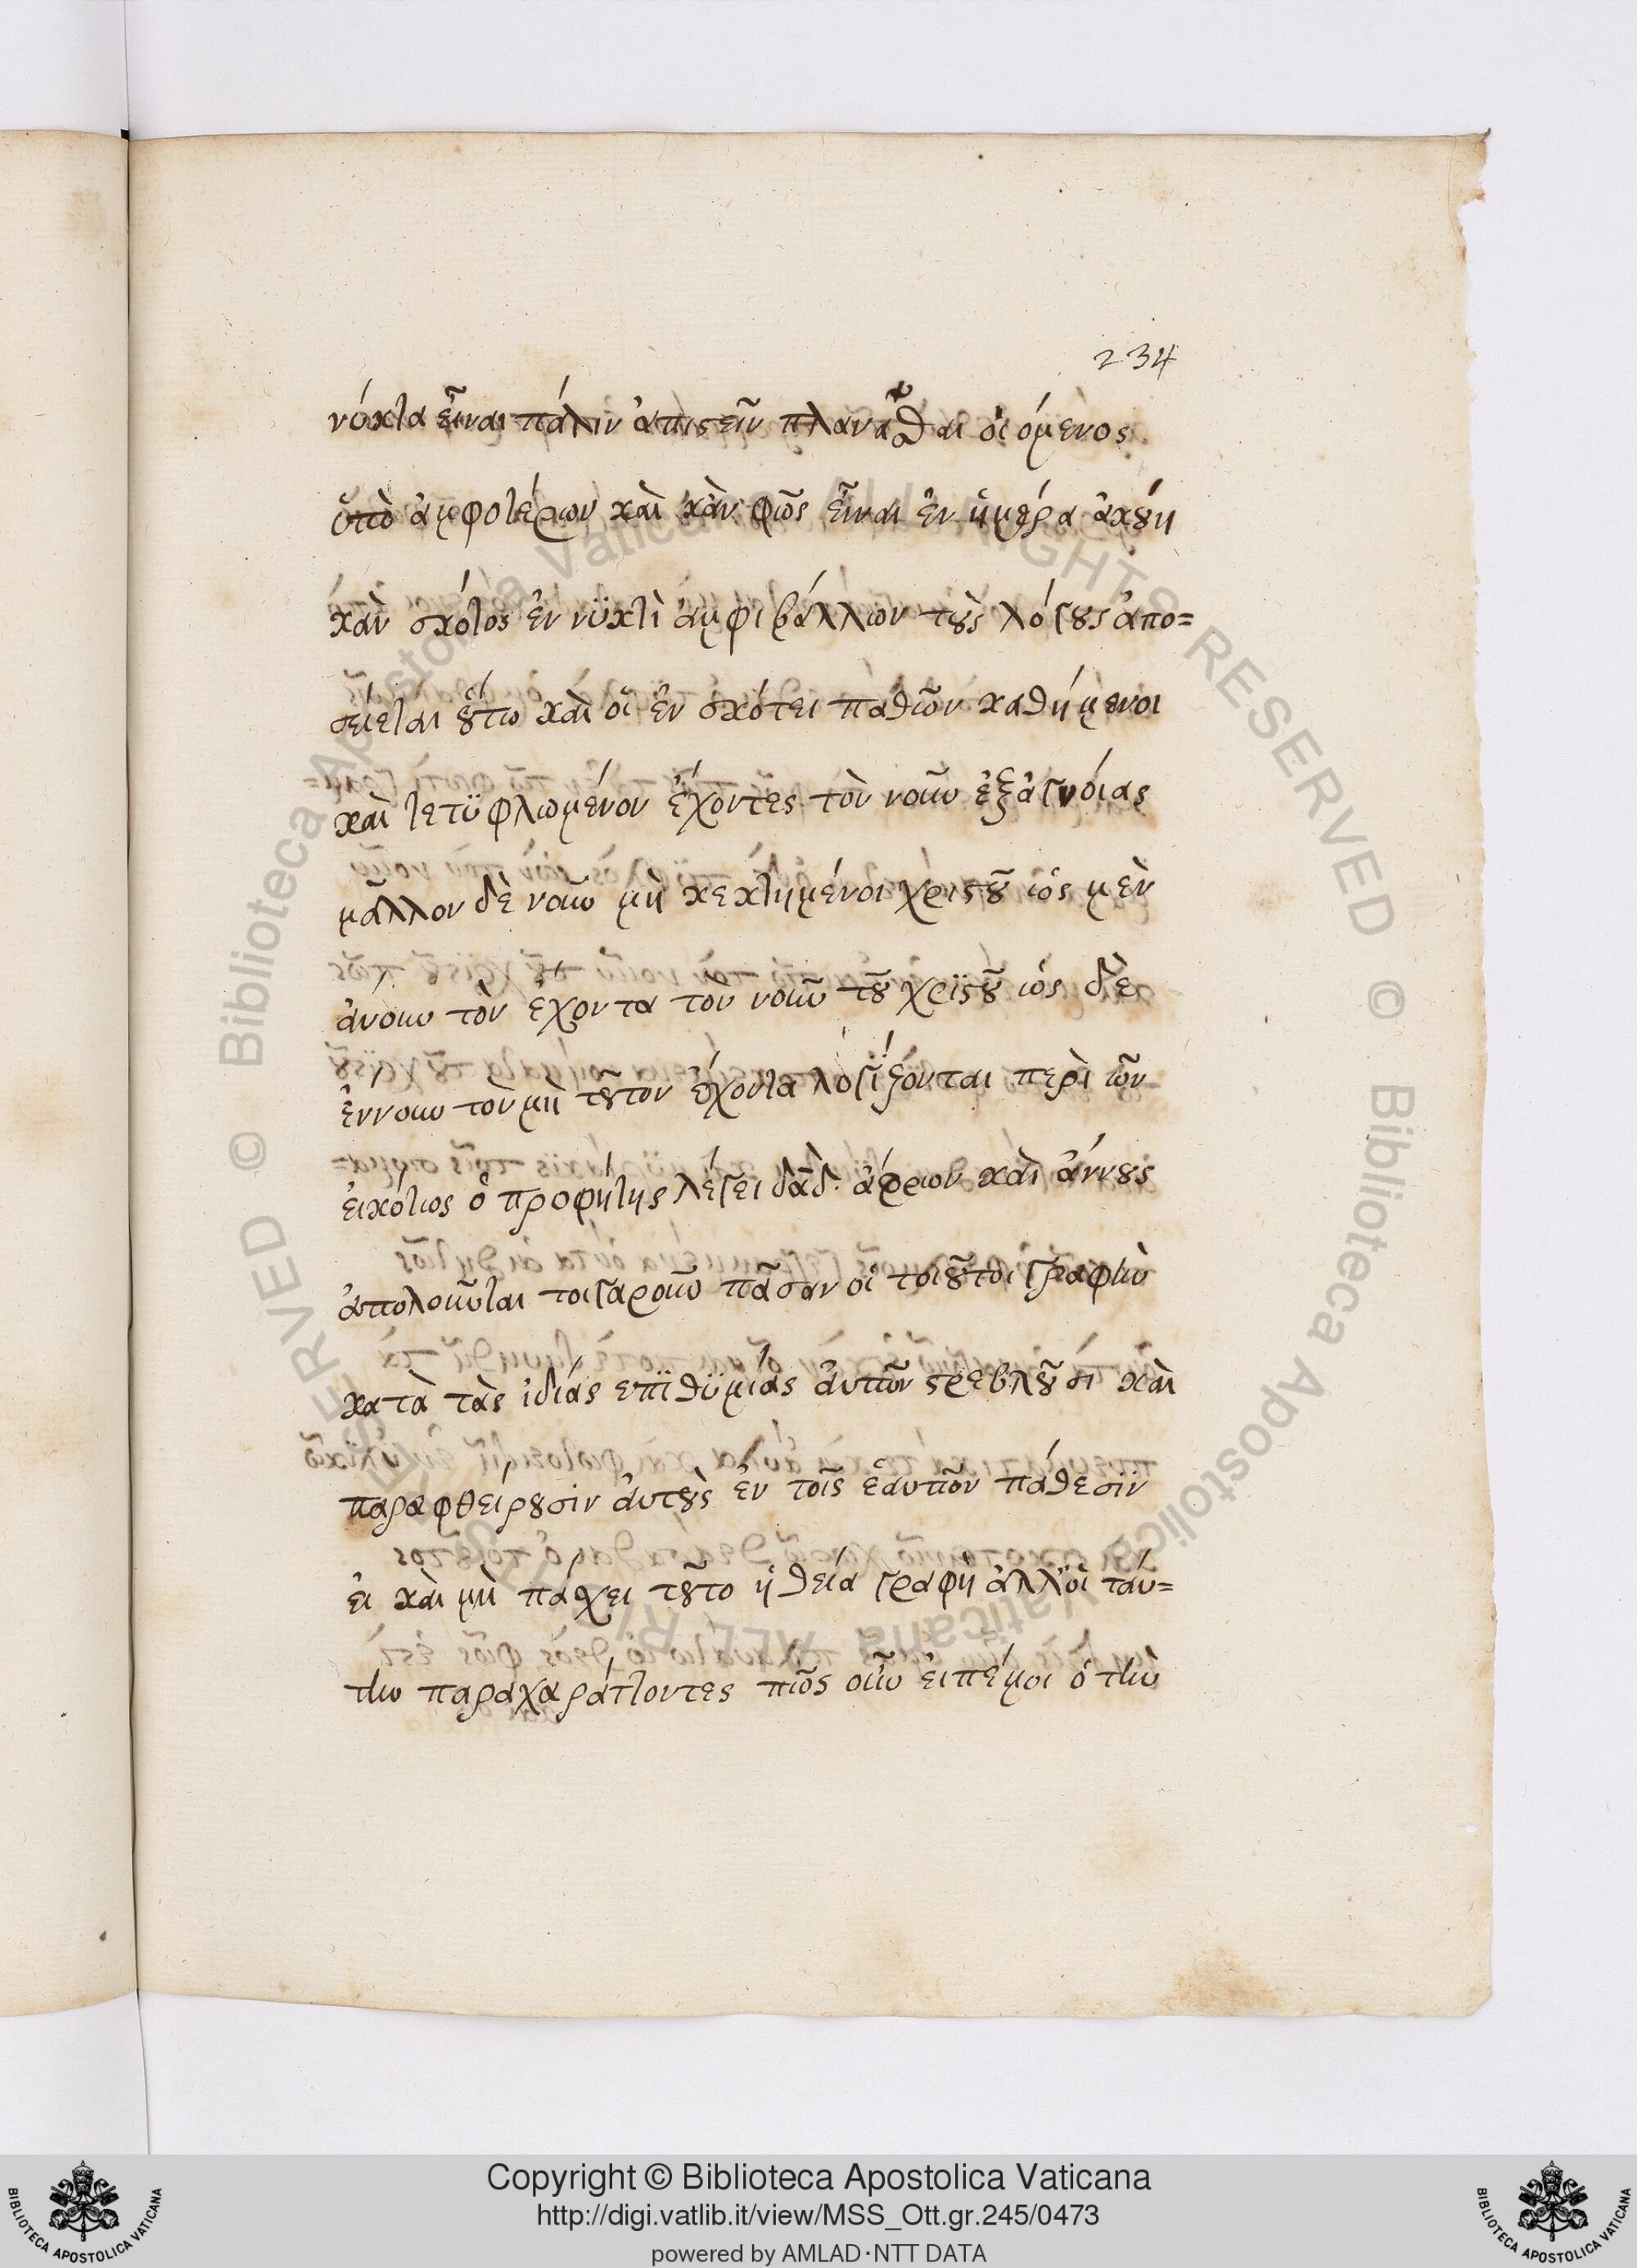 234
νύκτα εἶναι πάλιν ἀπιστεῖν πλανᾶσθαι οἰόμενος
ὑπὸ ἀμφοτέρων καὶ κἂν φῶς εἶναι ἐν ἡμέρα ἀκούη
κἂν σκότος ἐν νϋκτὶ ἀμφιβάλλων τοὺς λόγους ἀπο=
σείεται οὕτω καὶ οἳ ἐν σκότει παθῶν καθήμενοι
καὶ τετϋφλωμένον ἔχοντες τὸν νοῦν ἐξ ἀγνοίας
μᾶλλον δὲ νοῦν μὴ κεκτημένοι χριστοῦ ὡς μὲν
ἄνουν τὸν ἔχοντα τὸν νοῦν τοῦ χρϊστοῦ ὡς δὲ
ἔννουν τὸν μὴ τοῦτον ἔχοντα λογΐζονται περὶ ὧν
εἰκότως ὁ προφήτης λέγει δᾱδ ἄφρων καὶ ἄννους
ἀπολοῦνται τοιγαροῦν πᾶσαν οἱ τοιοῦτοι γραφὴν
κατὰ τὰς ἰδίας επϊθϋμίας ἀυτῶν στρεβλοῦσι καὶ
παραφθείρουσιν ἀυτοὺς ἐν τοῖς ἑαυτῶν πάθεσϊν
ἐι καὶ μὴ πάσχει τοῦτο ἡ θεία γραφὴ ἀλλ' οἱ ταύ=
την παραχαράττοντες πῶς οὖν ἐιπέμοι ὁ τὴν
Copyright © Biblioteca Apostolica Vaticana
http://digi.vatlib.it/view/MSS_Ott.gr.245/0473
powered by AMLAD·NTT DATA